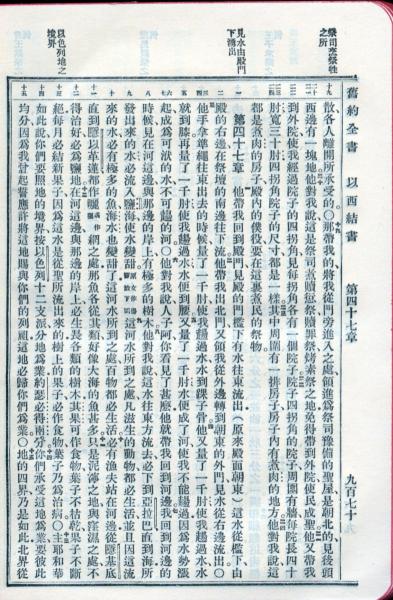 舊約全書 以西結書 第四十七章 九百七十
祭司煑祭牲之所
見水由殿門下湧出
以色列地之境界
散各人離開所承受的〇那帶我的將我從門旁進入之處領進為祭司豫備的聖屋是朝北的見後頭
西邊有一塊地他對我說這是祭司煑贖愆祭贖罪祭烤素祭之地免得帶到外院使民成聖他又帶我
到外院使我經過院子的四拐角見每拐角各有一個院子院子四拐角的院子周圍有牆每院長四十
肘寬三十肘四拐角院子的尺寸都是一樣其中周圍有一排房子房子內有煑肉的地方他對我說這
都是煑肉的房子殿內的僕役要在這裏煑民的祭物
第四十七章 他帶我回到殿門見殿的門檻下有水往東流出（原來殿面朝東）這水從檻下由
殿的右邊在祭壇的南邊往下流他帶我出北門又領我從外邊轉到朝東的外門見水從右邊流出〇
他手拿準繩往東出去的時候量了一千肘使我趟過水水到踝子骨他又量了一千肘使我趟過水水
就到膝再量了一千肘使我趟過水水便到腰又量了一千肘水便成了河使我不能趟過因為水勢漲
起成為可洑的水不可趟的河〇他對我說人子阿你看見了甚麼他就帶我回到河邊我回到河邊的
時候見在河這邊與那邊的岸上有極多的樹木他對我說這水往東方流去必下到亞拉巴直到海所
發出來的水必流入鹽海使水變甜這河水所到之處凡滋生的動物都必生活並且因這流
來的水必有極多的魚海水也變甜了這河水所到之處百物都必生活必有漁夫站在河邊從隱基底
直到隱以革蓮都作曬網之處那魚各從其類好像大海的魚甚多只是泥濘之地與窪濕之處不
得治好必為鹽地在河這邊與那邊的岸上必生長各類的樹木其果可作食物葉子不枯乾果子不斷
絕每月必結新果子因為這水是從聖所流出來的樹上的果子必作食物葉子乃為治病〇主耶和華
如此說你們要照地的境界按以色列十二支派分地為業約瑟必得兩分你們承受這地為業要彼此
均分因為我曾起誓應許將這地賜與你們的列祖這地必歸你們為業〇地的四界乃是如此北界從